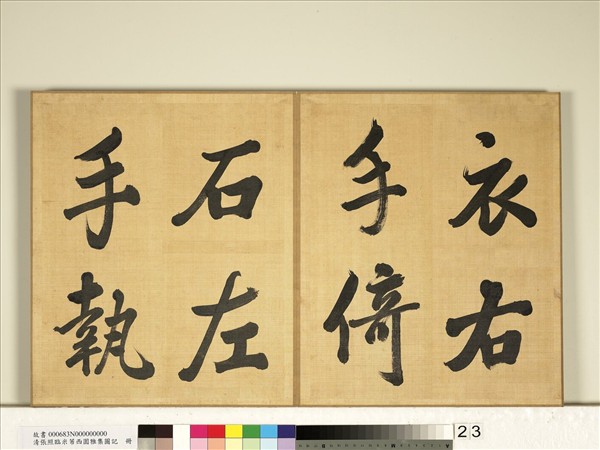 衣右
手倚
石左
手執
故書 000683N000000000
清張照臨米芾西園雅集圖記 冊
23